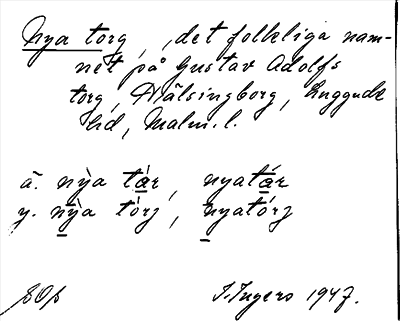 Nya torg, ,det folkliga nam-
net på Gustav Adolfs
torg, Hälsingborg, Luggude
hd, Malm. l.
ä. nỳa tár, nyatár
y. nỳa tórj, nyatórj
I. Ingers 1947.